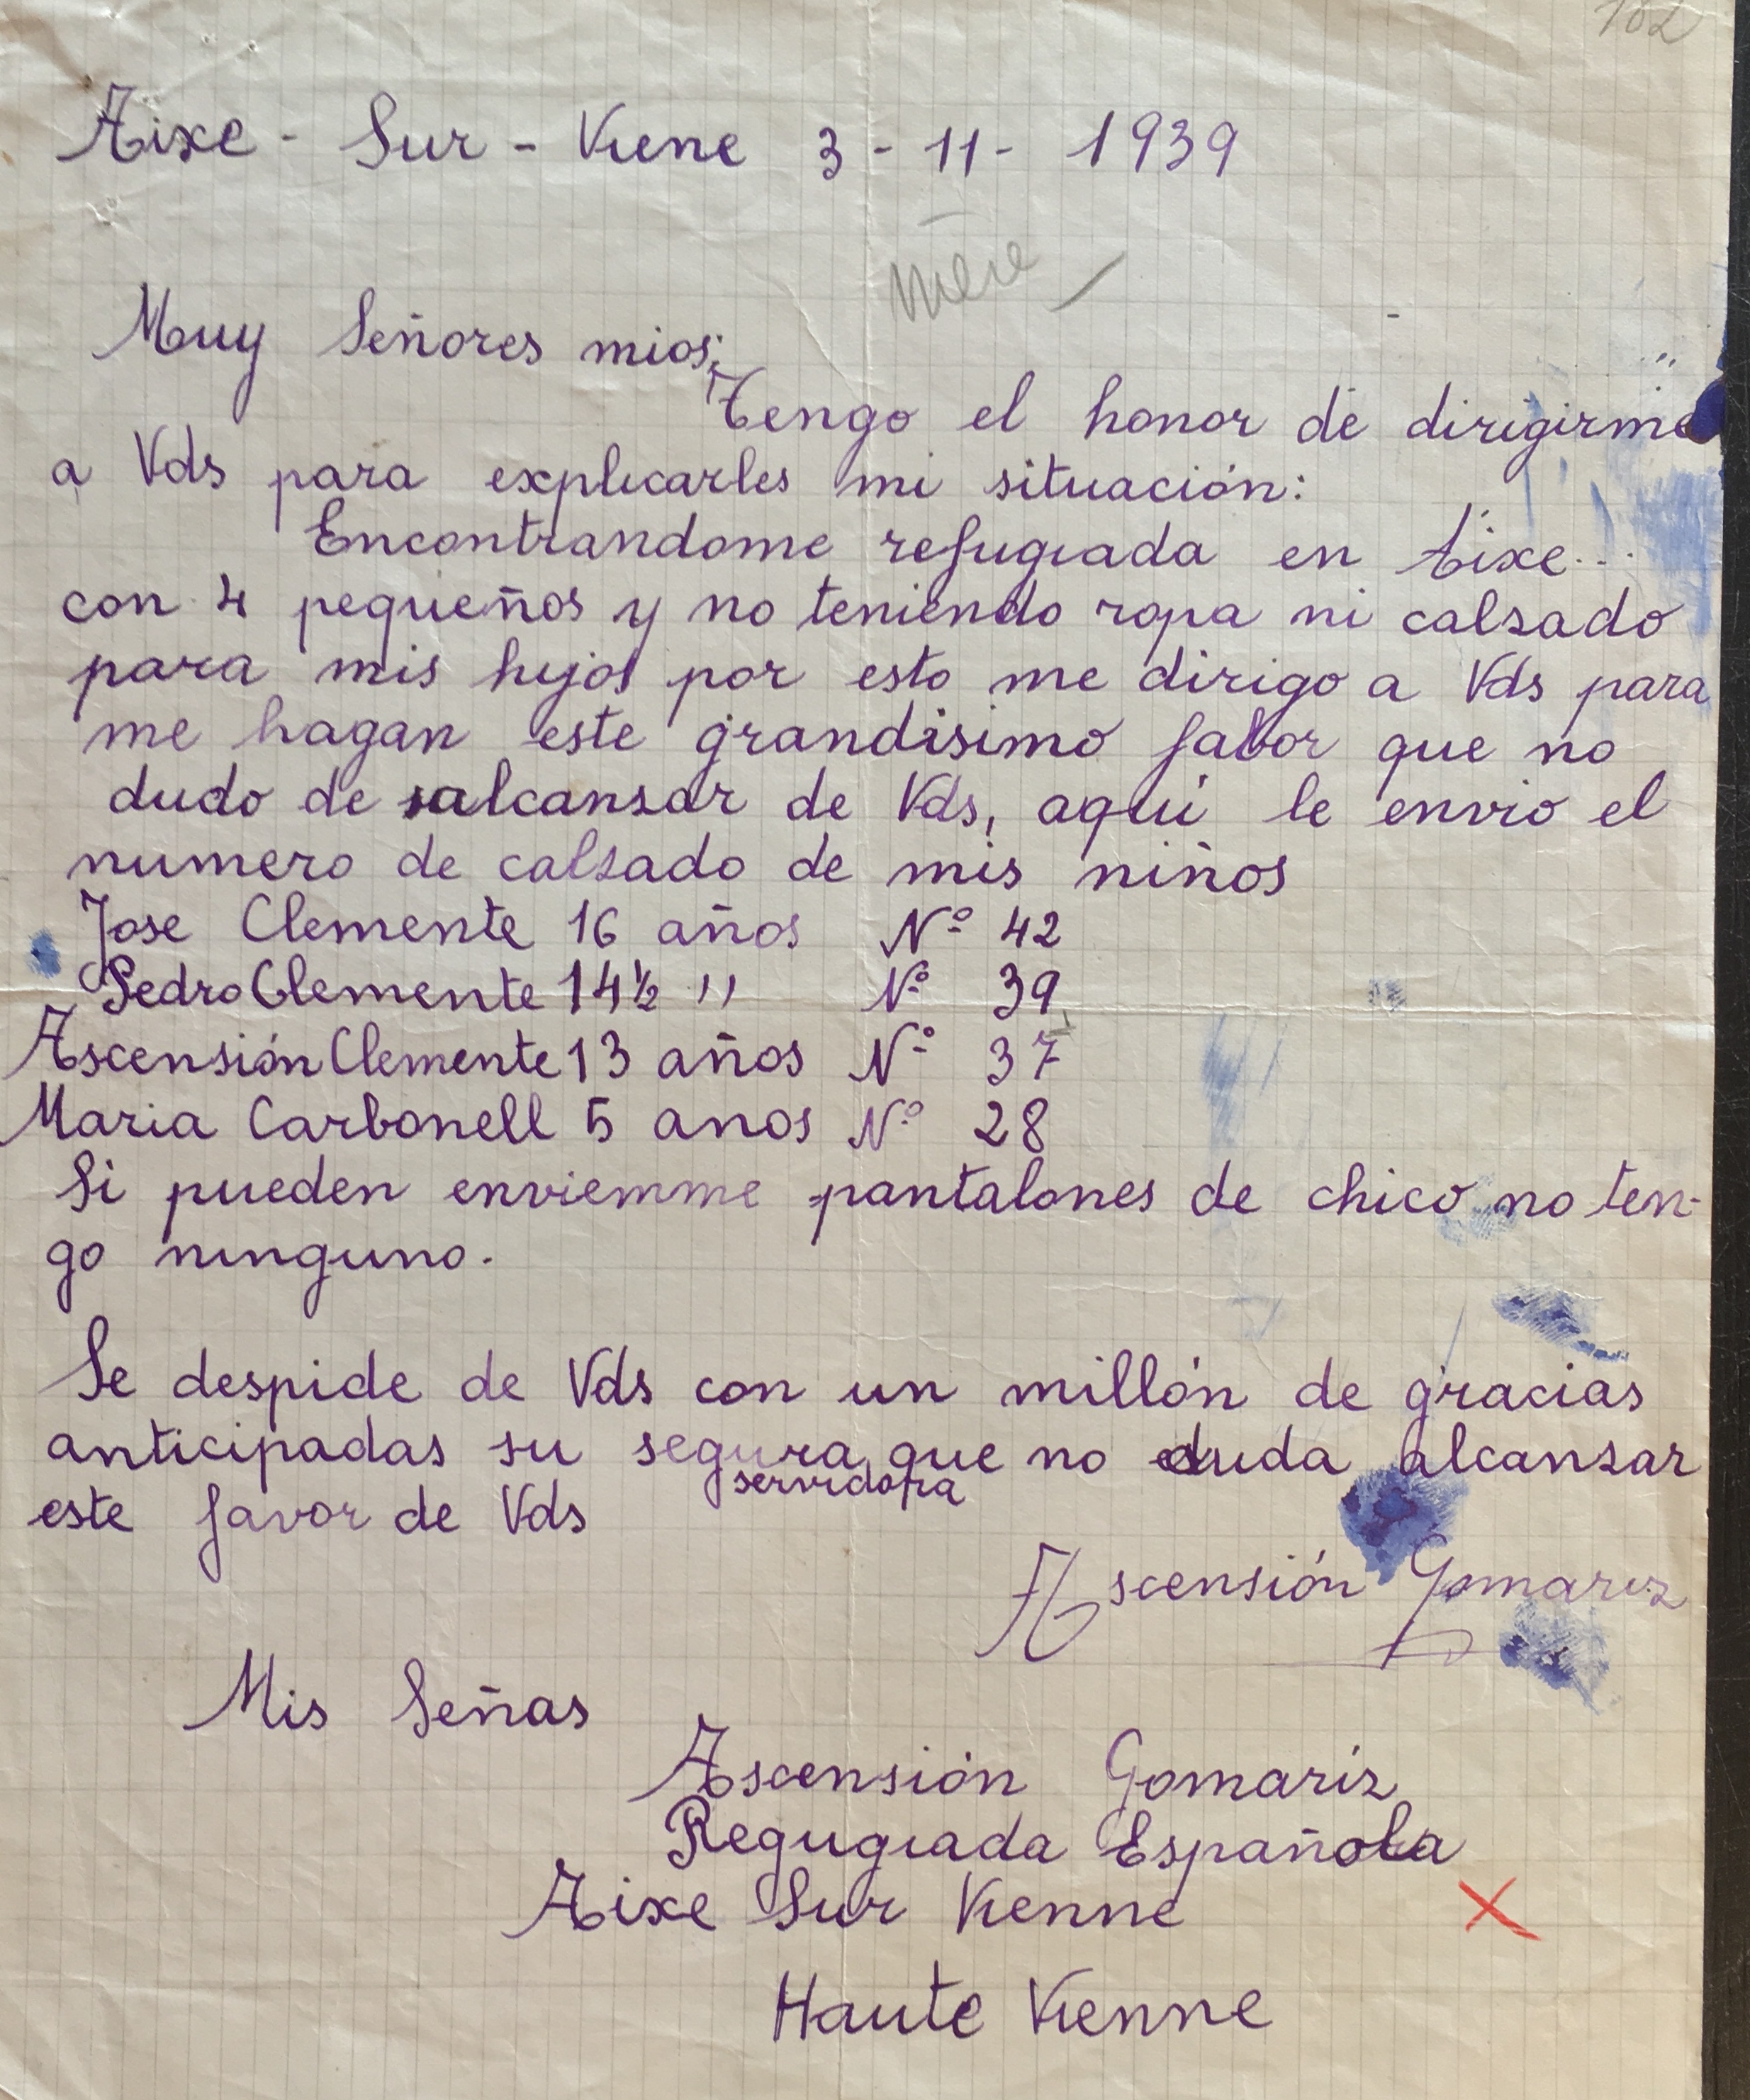 102
Aixe - Sur - Viene 3 - 11 - 1939
mère
Muy Señores mios;
Tengo el honor de dirigirme
a Vds para explicarles mi situación:
Encontrandome refugiada en Aixe...
con 4 pequeños y no teniendo ropa ni calsado
para mis hijos por esto me dirigo a Vds para
me hagan este grandisimo fabor que no
dudo de alcansar de Vds, aquí le envio el
numero de calsado de mis niños
Jose Clemente 16 años Nº 42
Pedro Clemente 14½ " Nº 39
Ascensión Clemente 13 años Nº 37
Maria Carbonell 5 anos Nº 28
Si pueden enviemme pantalones de chico no ten-
go ninguno.
Se despide de Vds con un millón de gracias
anticipadas su segura que no duda alcansar
servidora
este favor de Vds
Ascensión Gomariz
Mis Señas
Ascensión Gomariz
Regugiada Española
Aixe Sur Vienne
Haute Vienne